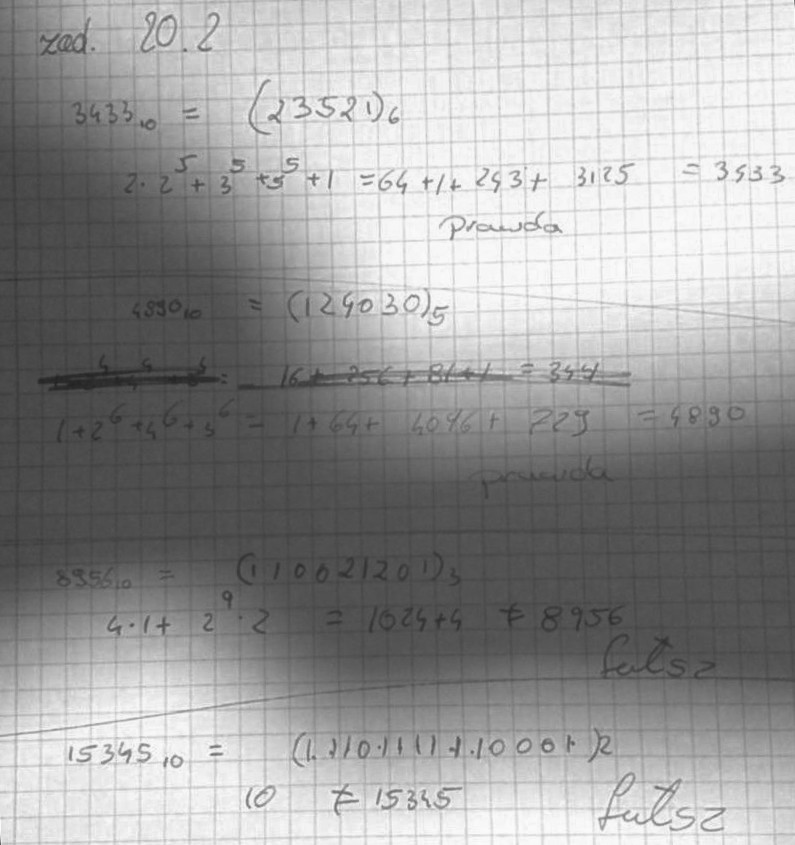 zad. 20.2
3433₁₀ = (23521)₆
2·2⁵ + 3⁵ + 5⁵ + 1 = 64 + 1 + 243 + 3125 = 3433
Prawda
4890₁₀ = (124030)₅
16 + 256 + 81 + 1 = 344
1 + 2⁶ + 4⁶ + 3⁶ = 1 + 64 + 4096 + 729 = 4890
prawda
8956₁₀ = (110021201)₃
4·1 + 2⁹·2 = 1024 + 4 ≠ 8956
fałsz
15345₁₀ = (11101111110001)₂
10 ≠ 15345
fałsz